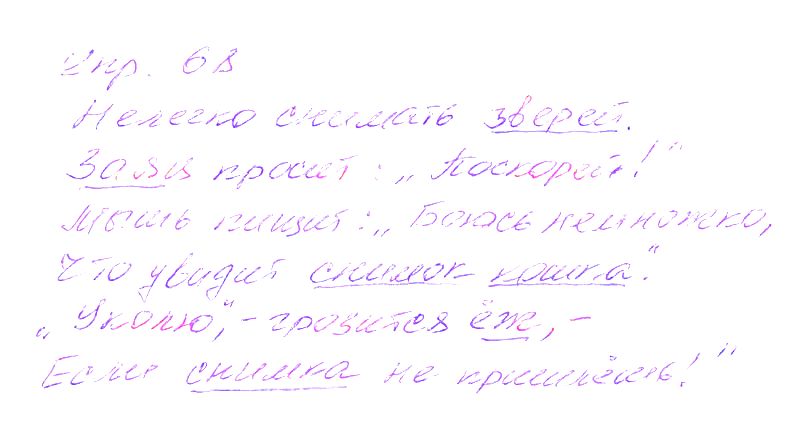 Упр. 68
Нелегко снимать зверей.
Заяц просит: „Поскорей!"
Мышь пищит: „Боюсь немножко,
Что увидит снимок кошка".
„Уколю", - грозится ёж, -
Если снимка не пришлёшь!"